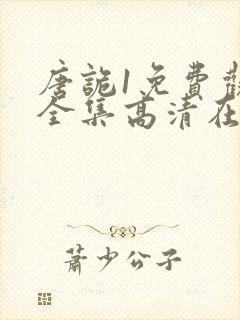 唐詭1免費觀
全集高清在
蕭少公子